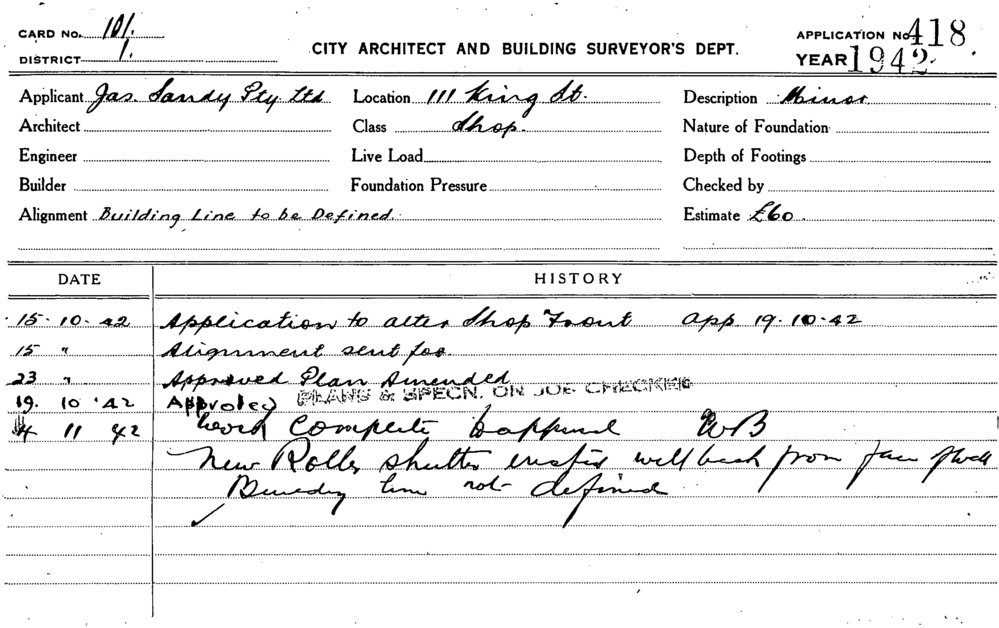 CARD No. 101. APPLICATION No. 418
DISTRICT 1. CITY ARCHITECT AND BUILDING SURVEYOR'S DEPT. YEAR 1942
Applicant Jas. Sandy Pty Ltd Location 111 King St. Description Minor
Architect Class Shop. Nature of Foundation
Engineer Live Load Depth of Footings
Builder Foundation Pressure Checked by
Alignment Building Line to be Defined. Estimate £60.
DATE HISTORY
15.10.42 Application to alter Shop Front app 19.10.42
15 " Alignment sent for.
23 " Approved Plan Amended
19. 10 '42 Approved PLANS & SPECN. ON JOB CHECKED
4 11 42 Work Complete & approved WB
New Roller shutter erected well back from face of wall
Boundary line not defined